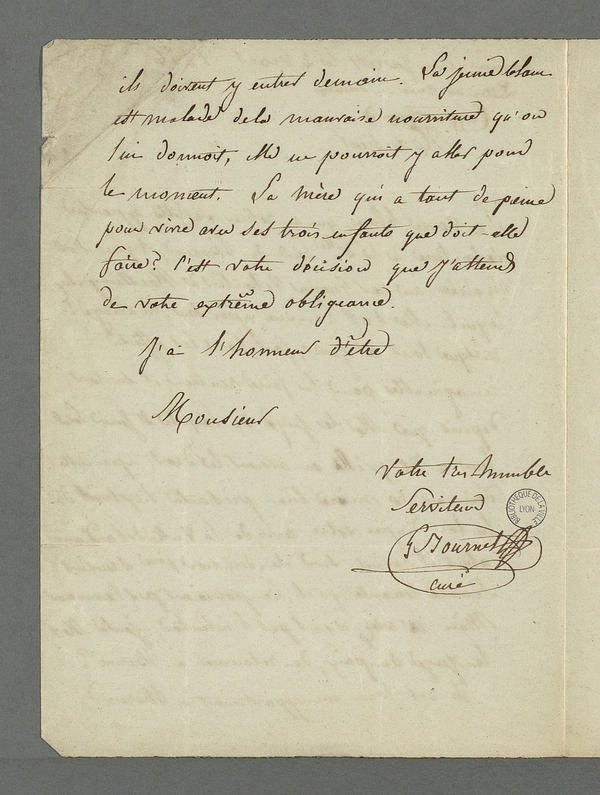 ils doivent y entrer demain. La jeune
est malade de la mauvaise nourriture qu'on
lui donnoit, elle ne pourroit y aller pour
le moment. La mère qui a tant de peine
pour vivre avec ses trois enfants que doit-elle
faire? C'est votre décision que j'attends
de votre extrême obligeance.
J'ai l'honneur d'être
Monsieur
Votre très humble
Serviteur
Journet
curé
BIBLIOTHEQUE DE LA VILLE
LYON